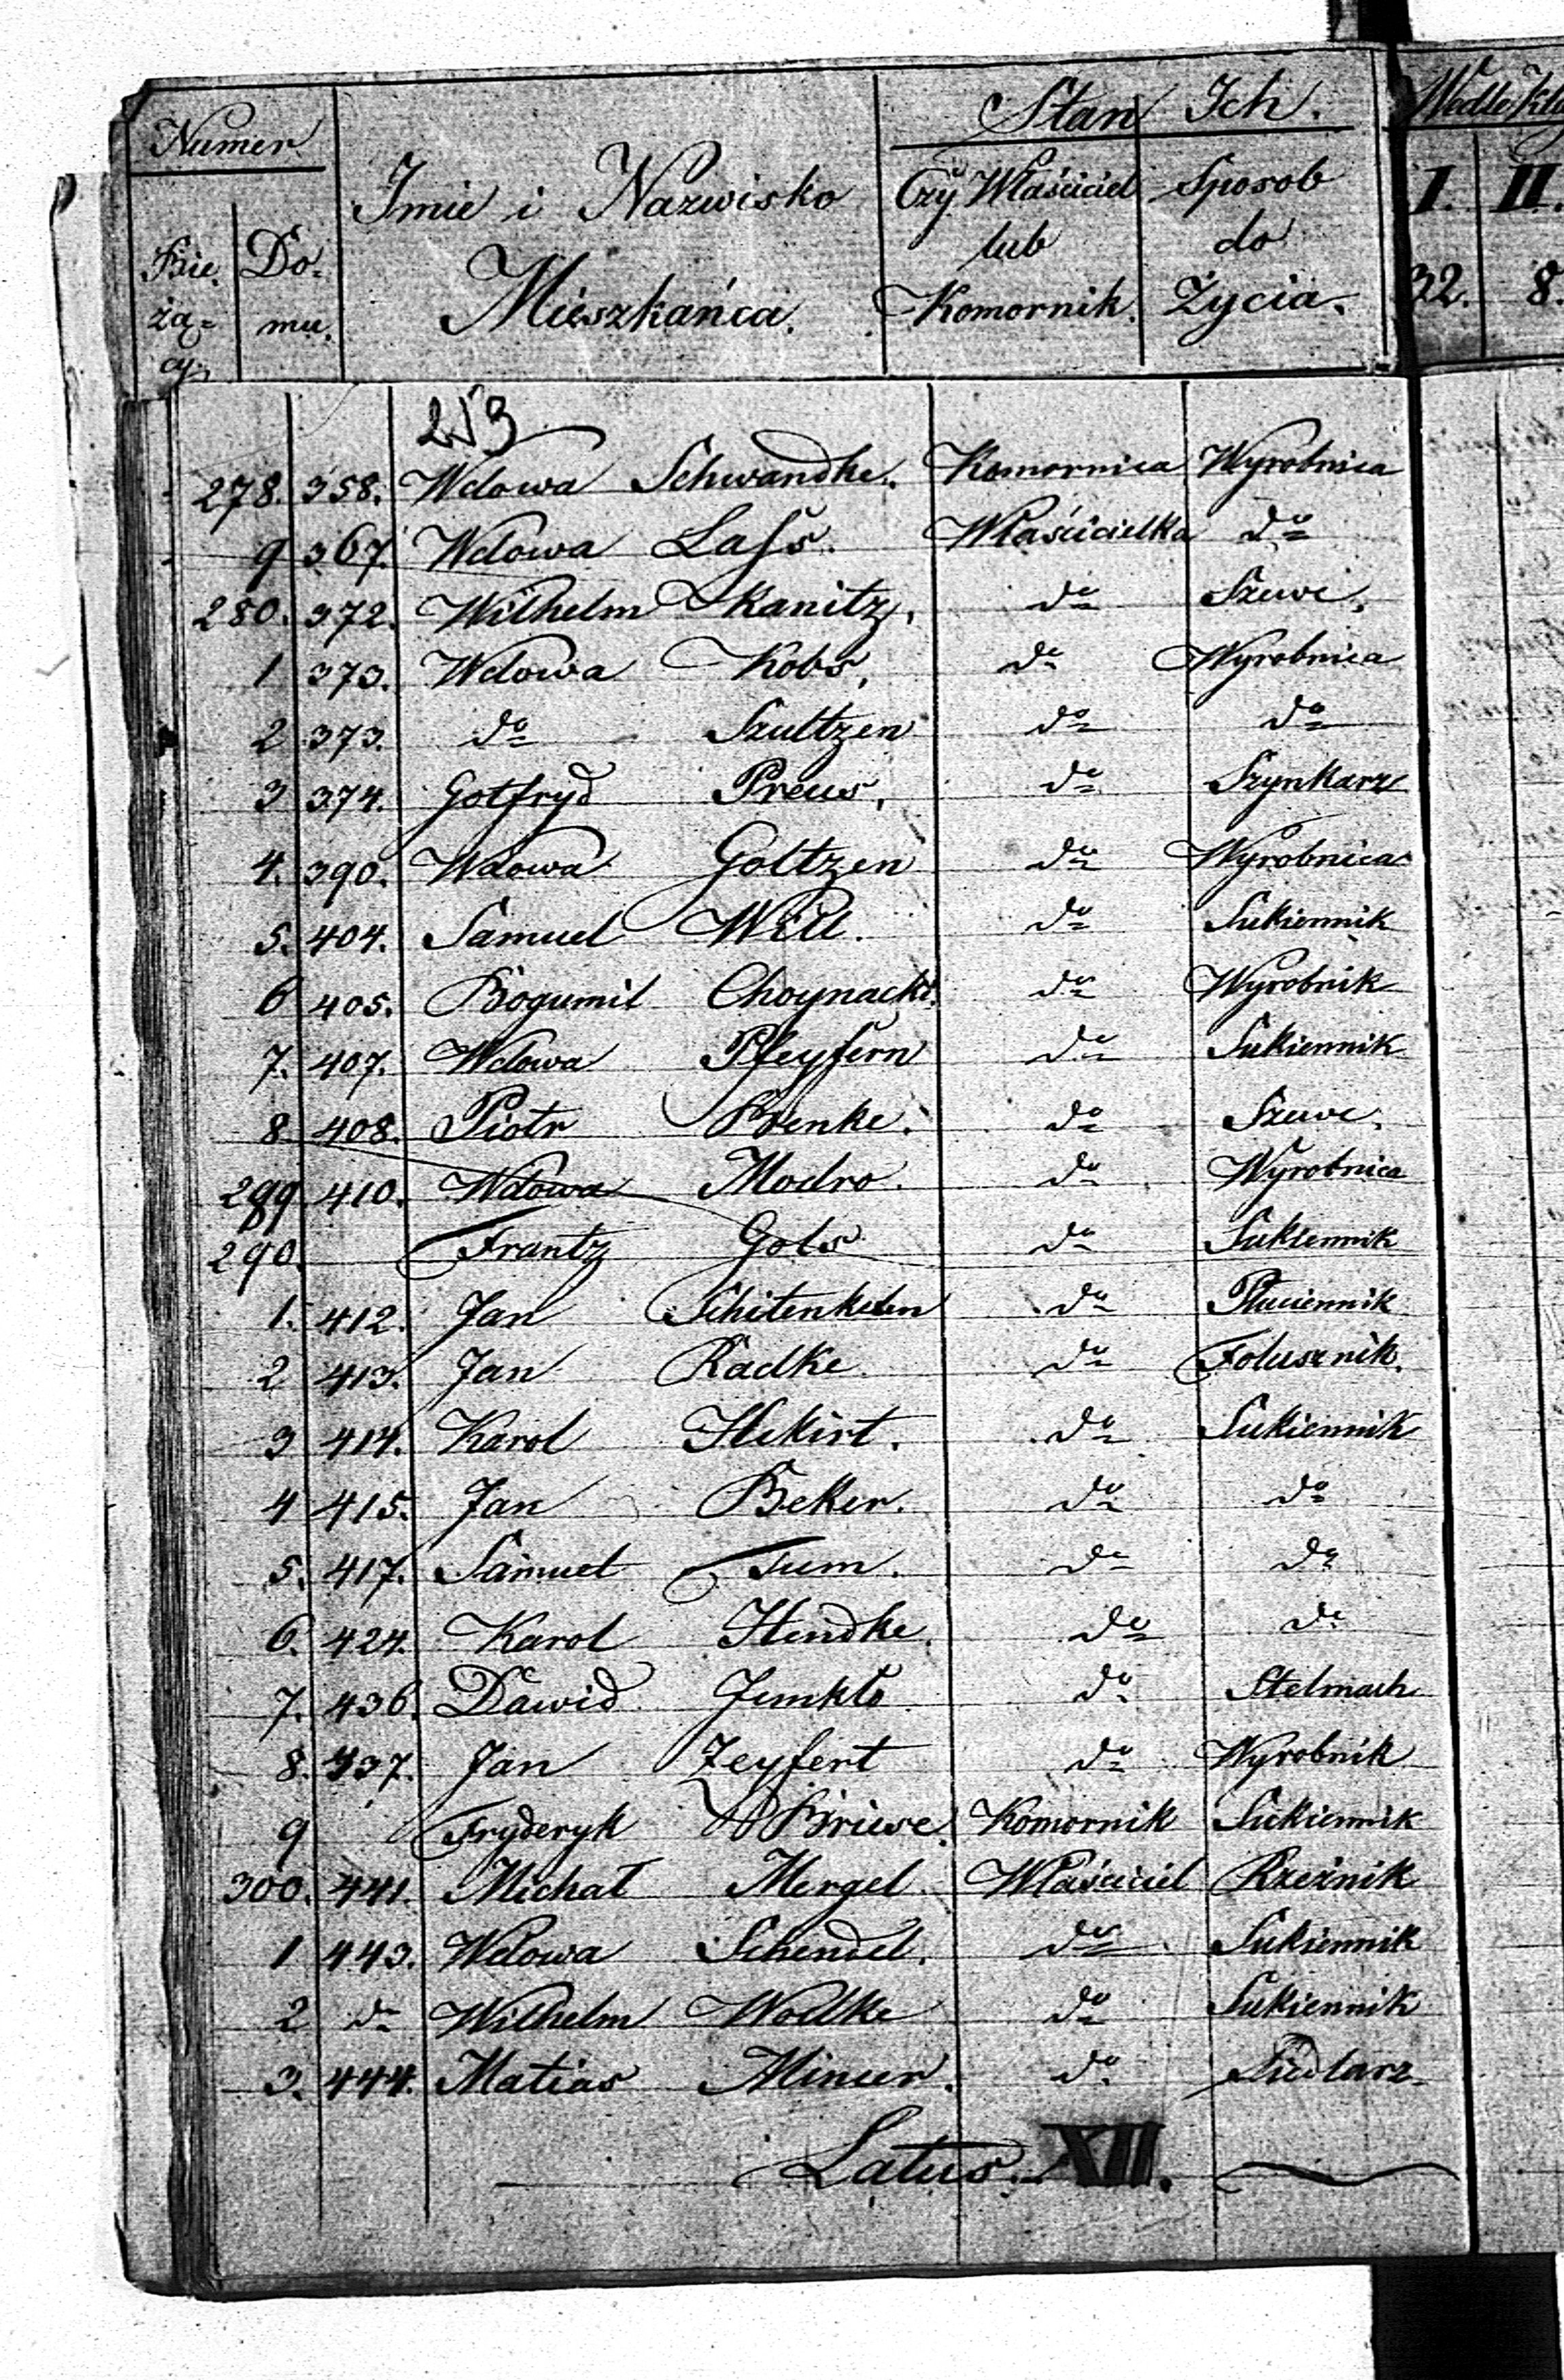 Numer Stan Ich. Wedle
Imie i Nazwisko Czy Właściciel Sposob I. II.
Bie Do- lub do
żą- mu. Mieszkańca. Komornik. Życia. 32. 8
cy
253
278. 358. Wdowa Schwandke. Komornica Wyrobnica
9 367. Wdowa Laſs. Właścicielka do
280. 372. Wilhelm Kanitz, do Szewc,
1 373. Wdowa Kobs, do Wyrobnica
2 373. do Szultzen do do
3 374. Gotfryd Preus, do Szynkarz
4. 390. Wdowa Goltzen do Wyrobnica
5. 404. Samuel Will. do Sukiennik
6 405. Bogumil Choynacki. do Wyrobnik
7. 407. Wdowa Pfeyfern do Sukiennik
8 408. Piotr Brenke. do Szewc.
289 410. Wdowa Modro. do Wyrobnica
290. Frantz Gols do Sukiennik
1. 412. Jan do Płuciennik
2 413. Jan Radke do Folusznik.
3 414. Karol Hekirt. do Sukiennik
4 415. Jan Beker. do do
5. 417. Samuel Tum. do do
6. 424. Karol Hendke. do do
7. 436. Dawid do Stelmach
8. 437. Jan Zeyfert do Wyrobnik
9 Fryderyk Briese. Komornik Sukiennik
300. 441. Michał Mergel. Właściciel Rzeźnik
1 443. Wdowa Schendel. do Sukiennik
2 do Wilhelm Wodke do Sukiennik
3. 444. Matias Mincer. do Siodlarz
Latus. XII.